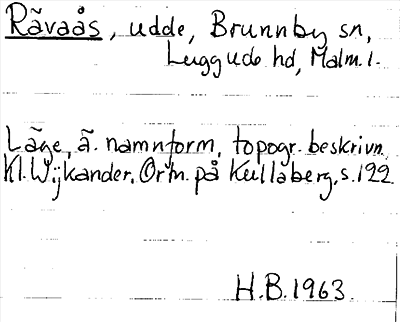 Råvaås, udde, Brunnby sn,
Luggude hd, Malm. l.
Läge, ä. namnform, topogr. beskrivn.
Kl. Wijkander, Ortn. på Kullaberg, s. 122
H.B. 1963.